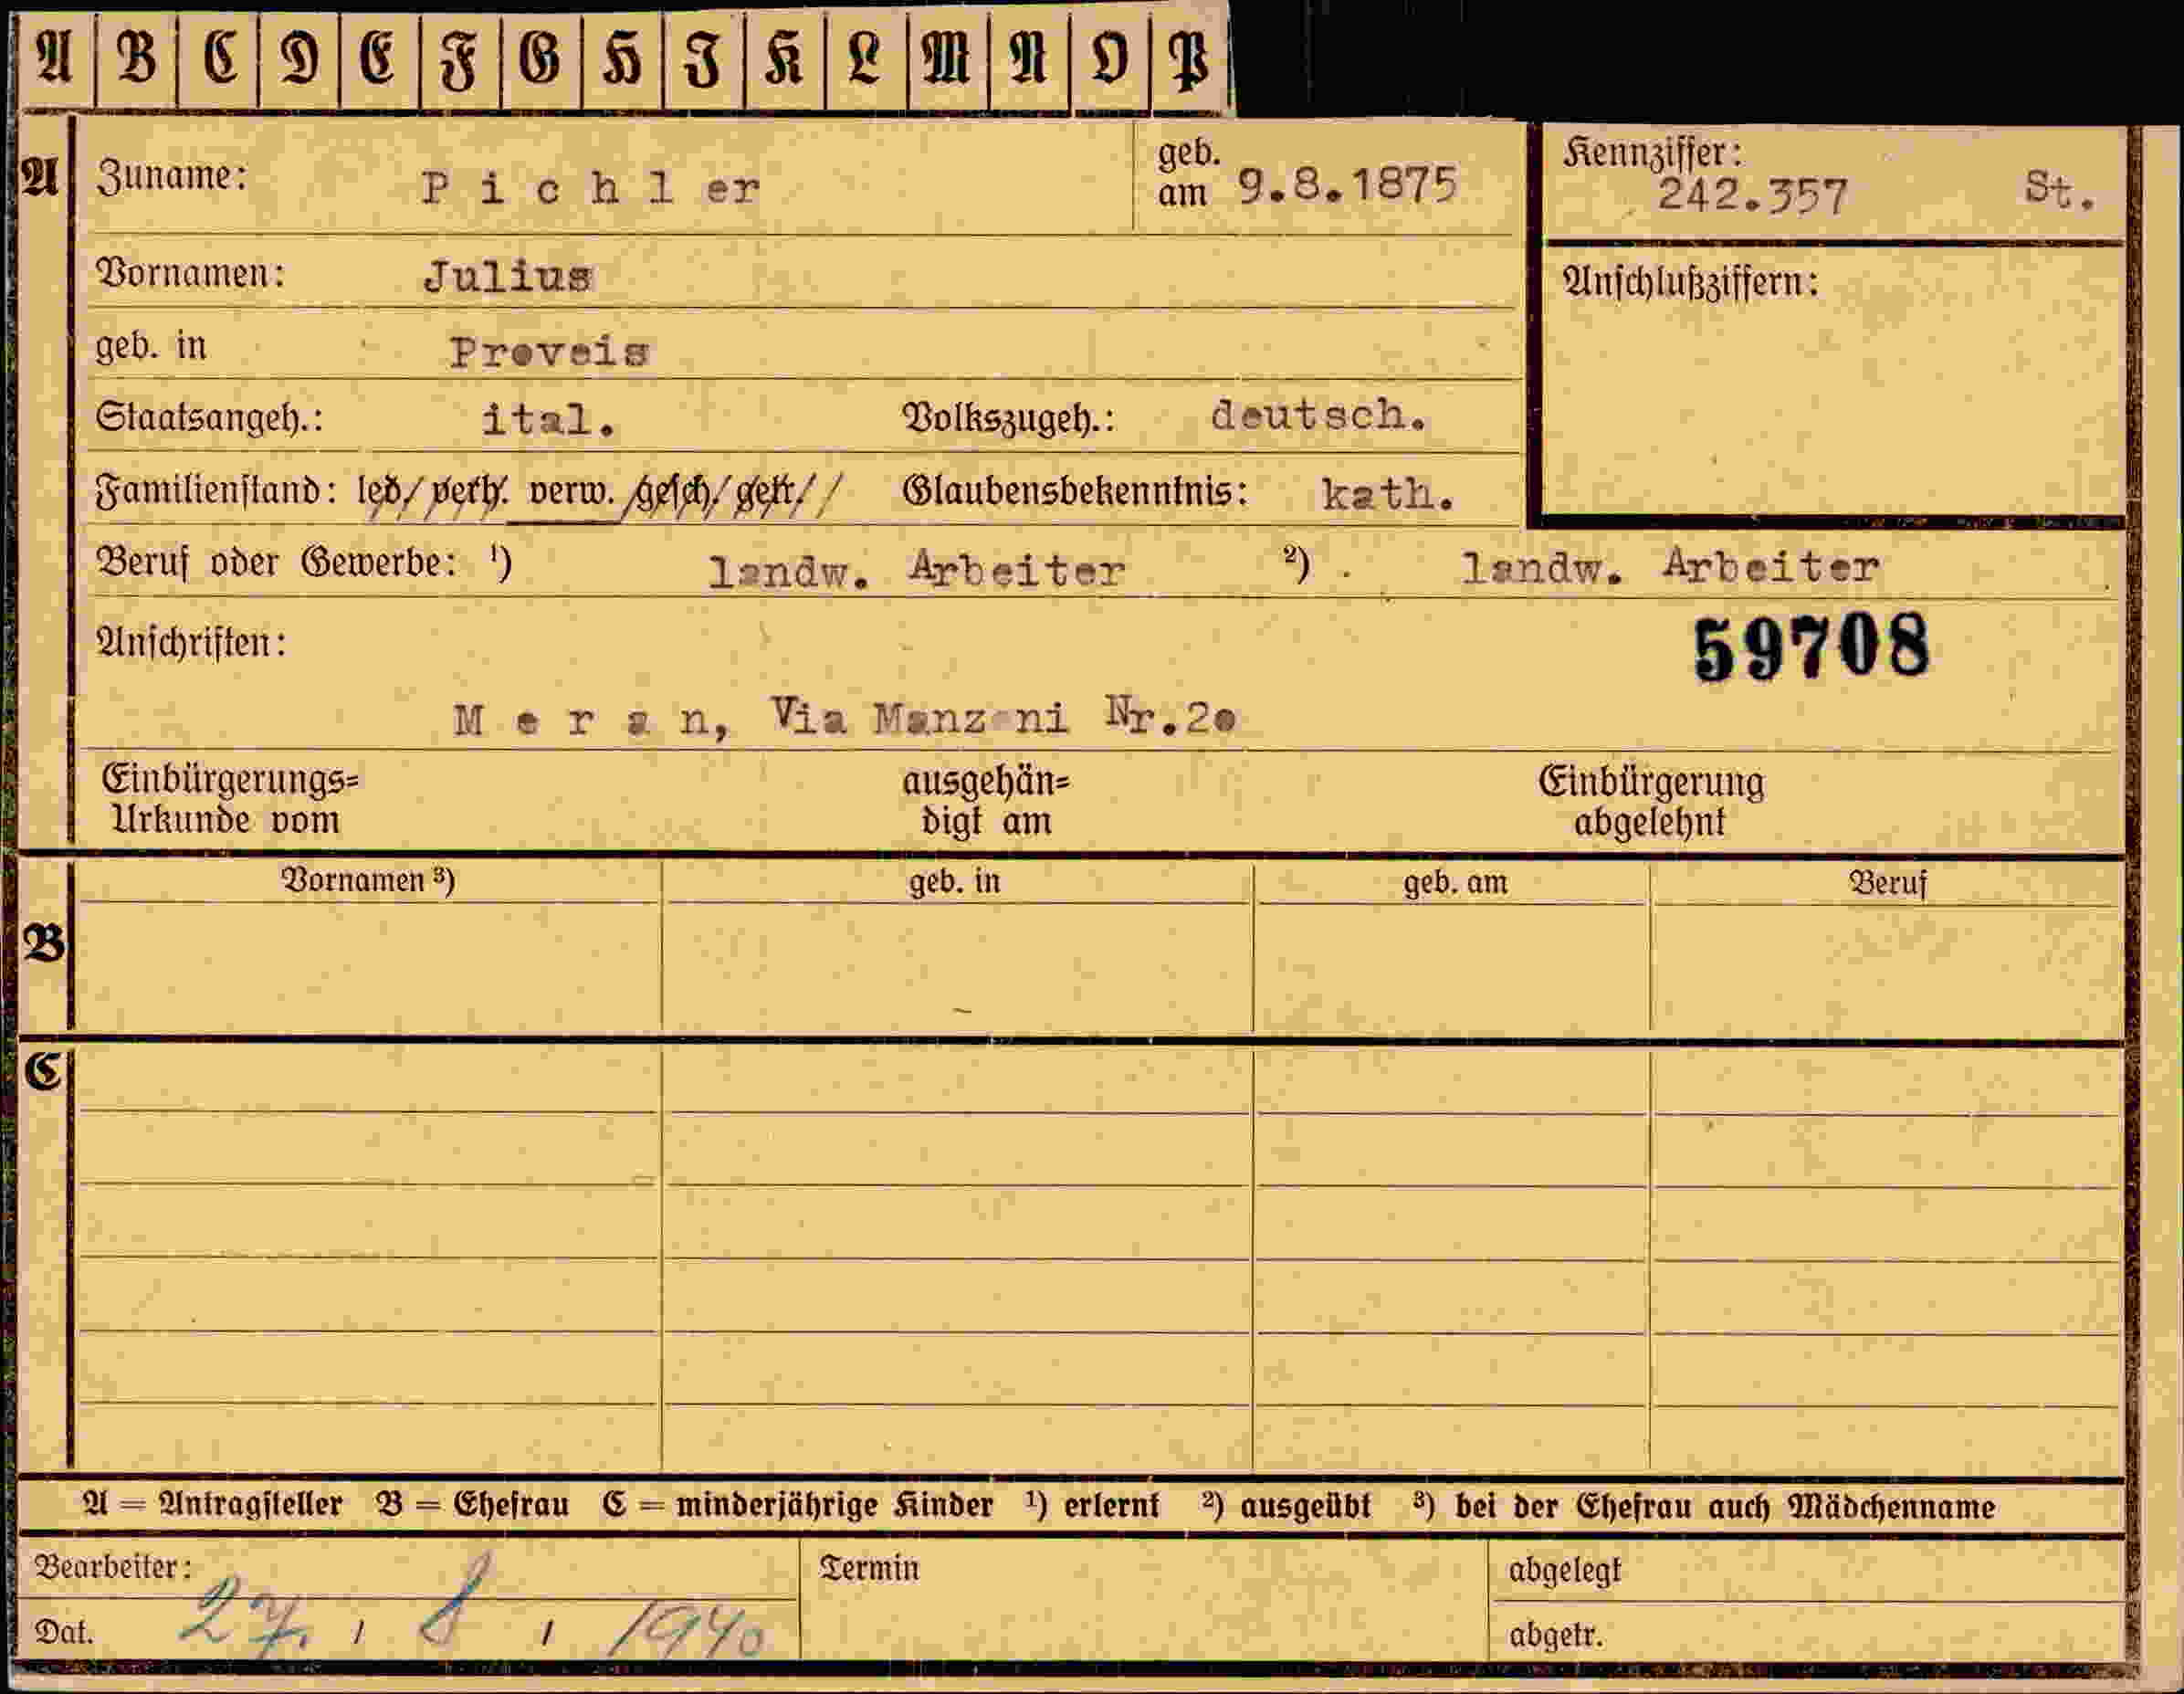 A B C D E F G H I K L M N O P
A Zuname: Pichler geb. am 9.8.1875 Kennziffer: 242.357 St.
Vornamen: Julius Anschlußziffern:
geb. in Proveis
Staatsangeh.: ital. Volkszugeh.: deutsch.
Familienstand: led. verh. verw. gesch. getr. Glaubensbekenntnis: kath.
Beruf oder Gewerbe: ¹) landw. Arbeiter ²) landw. Arbeiter
Anschriften: 59708
Meran, Via Manzoni Nr.20
Einbürgerungs= ausgehän= Einbürgerung
Urkunde vom digt am abgelehnt
Vornamen ³) geb. in geb. am Beruf
B
C
A = Antragsteller B = Ehefrau C = minderjährige Kinder ¹) erlernt ²) ausgeübt ³) bei der Ehefrau auch Mädchenname
Bearbeiter: Termin abgelegt
Dat. 27. / 8 / 1940 abgetr.